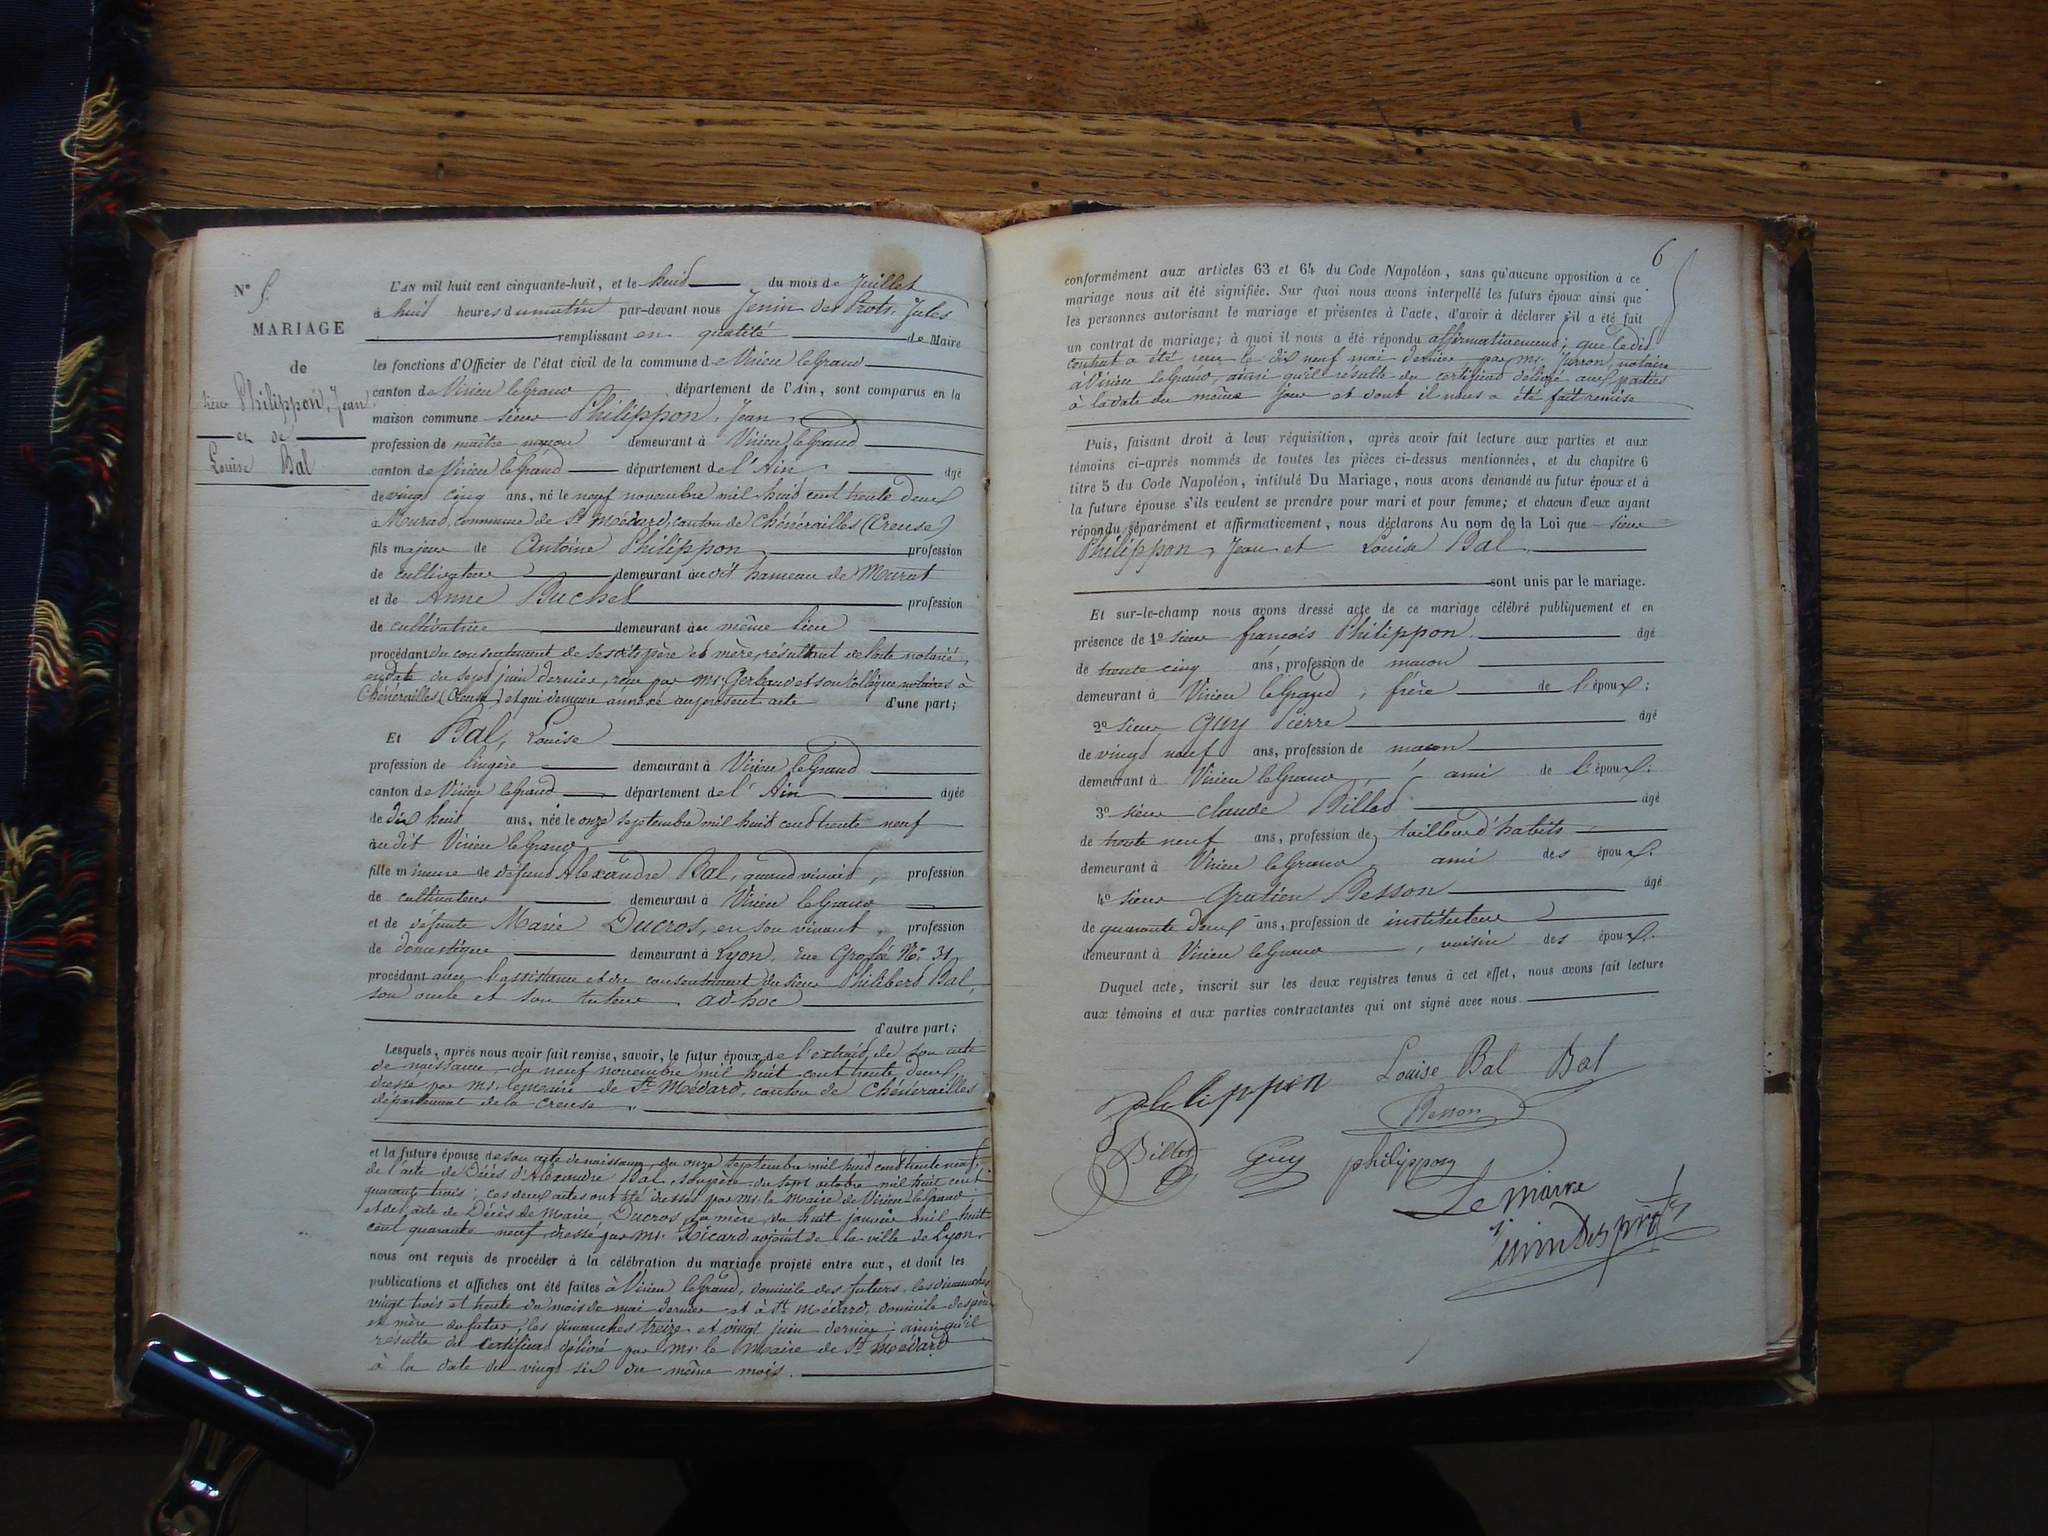 N° 5.
MARIAGE
de
sieur Philippon, Jean
et de
Louise Bal
L'AN mil huit cent cinquante-huit, et le huit du mois de Juillet
à huit heures du matin par-devant nous Jenin des Prots, Jules
remplissant en qualité de Maire
les fonctions d'Officier de l'état civil de la commune de Virieu leGrand
canton de Virieu leGrand, département de l'Ain, sont comparus en la
maison commune sieur Philippon, Jean,
profession de maître maçon demeurant à Virieu leGrand
canton de Virieu leGrand département de l'Ain, âgé
de vingt cinq ans, né le neuf novembre mil huit cent trente deux
à Murat, commune de St Médard, canton de Chénérailles (Creuse)
fils majeur de Antoine Philippon, profession
de cultivateur demeurant au dit hameau de Murat
et de Anne Buchet profession
de cultivatrice demeurant au même lieu
procédant du consentement de ses dits père et mère, résultant de l'acte notarié,
en date du sept juin dernier, reçu par Mr. Gerbaud et son collègue notaires à
Chénérailles (Creuse) et qui demeure annexé au présent acte d'une part;
Et Bal, Louise
profession de lingère demeurant à Virieu leGrand
canton de Virieu leGrand département de l'Ain, âgée
de dix huit ans, née le onze septembre mil huit cent trente neuf
au dit Virieu leGrand,
fille mineure de défunt Alexandre Bal, quand vivait, profession
de cultivateur demeurant à Virieu leGrand
et de défunte Marie Ducros, en son vivant, profession
de domestique demeurant à Lyon, rue Grolée No. 31,
procédant avec l'assistance et du consentement du sieur Philibert Bal,
son oncle et son tuteur ad-hoc
d'autre part;
Lesquels, après nous avoir fait remise, savoir, le futur époux de l'extrait de son acte
de naissance du neuf novembre mil huit cent trente deux,
dressé par mr. le maire de St Médard, canton de Chénérailles
département de la Creuse.
et la future épouse de son acte de naissance, du onze septembre mil huit cent trente neuf,
de l'acte de Décès d'Alexandre Bal, son père du sept octobre mil huit cent
quarante trois; ces deux actes ont été dressés par mr. le Maire de Virieu leGrand;
et de l'acte de Décès de Marie Ducros, sa mère, du huit janvier mil huit
cent quarante neuf, dressé par mr. Ricard, adjoint de la ville de Lyon,
nous ont requis de procéder à la célébration du mariage projeté entre eux, et dont les
publications et affiches ont été faites à Virieu leGrand, domicile des futurs, les dimanches
vingt trois et trente du mois de mai dernier et à St Médard, domicile des père
et mère du futur, les dimanches treize et vingt juin dernier; ainsi qu'il
résulte du certificat délivré par Mr. le Maire de St Médard
à la date du vingt six du même mois.
6
conformément aux articles 63 et 64 du Code Napoléon, sans qu'aucune opposition à ce
mariage nous ait été signifiée. Sur quoi nous avons interpellé les futurs époux ainsi que
les personnes autorisant le mariage et présentes à l'acte, d'avoir à déclarer s'il a été fait
un contrat de mariage; à quoi il nous a été répondu affirmativement; que le dit
contrat a été reçu le dix neuf mai dernier par mr. Jurron, notaire
à Virieu leGrand, ainsi qu'il résulte du certificat délivré aux parties
à la date du même jour et dont il nous a été fait remise
Puis, faisant droit à leur réquisition, après avoir fait lecture aux parties et aux
témoins ci-après nommés de toutes les pièces ci-dessus mentionnées, et du chapitre 6
titre 5 du Code Napoléon, intitulé Du Mariage, nous avons demandé au futur époux et à
la future épouse s'ils veulent se prendre pour mari et pour femme; et chacun d'eux ayant
répondu séparément et affirmativement, nous déclarons Au nom de la Loi que sieur
Philippon, Jean et Louise Bal,
sont unis par le mariage.
Et sur-le-champ nous avons dressé acte de ce mariage célébré publiquement et en
présence de 1° sieur françois Philippon. âgé
de trente cinq ans, profession de maçon
demeurant à Virieu leGrand, frère de l'époux;
2° sieur Guy Pierre âgé
de vingt neuf ans, profession de maçon
demeurant à Virieu leGrand, ami de l'époux.
3° sieur Claude Billet âgé
de trente neuf ans, profession de tailleur d'habits
demeurant à Virieu leGrand, ami des époux.
4° sieur Gratien Besson âgé
de quarante deux ans, profession de instituteur
demeurant à Virieu leGrand, voisin des époux.
Duquel acte, inscrit sur les deux registres tenus à cet effet, nous avons fait lecture
aux témoins et aux parties contractantes qui ont signé avec nous.
philippon Louise Bal Bal
Besson
Billet Guy philippon
Le Maire
Jenin Des prots